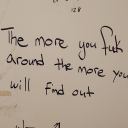 128
The more you fuck
around the more you
will Find out